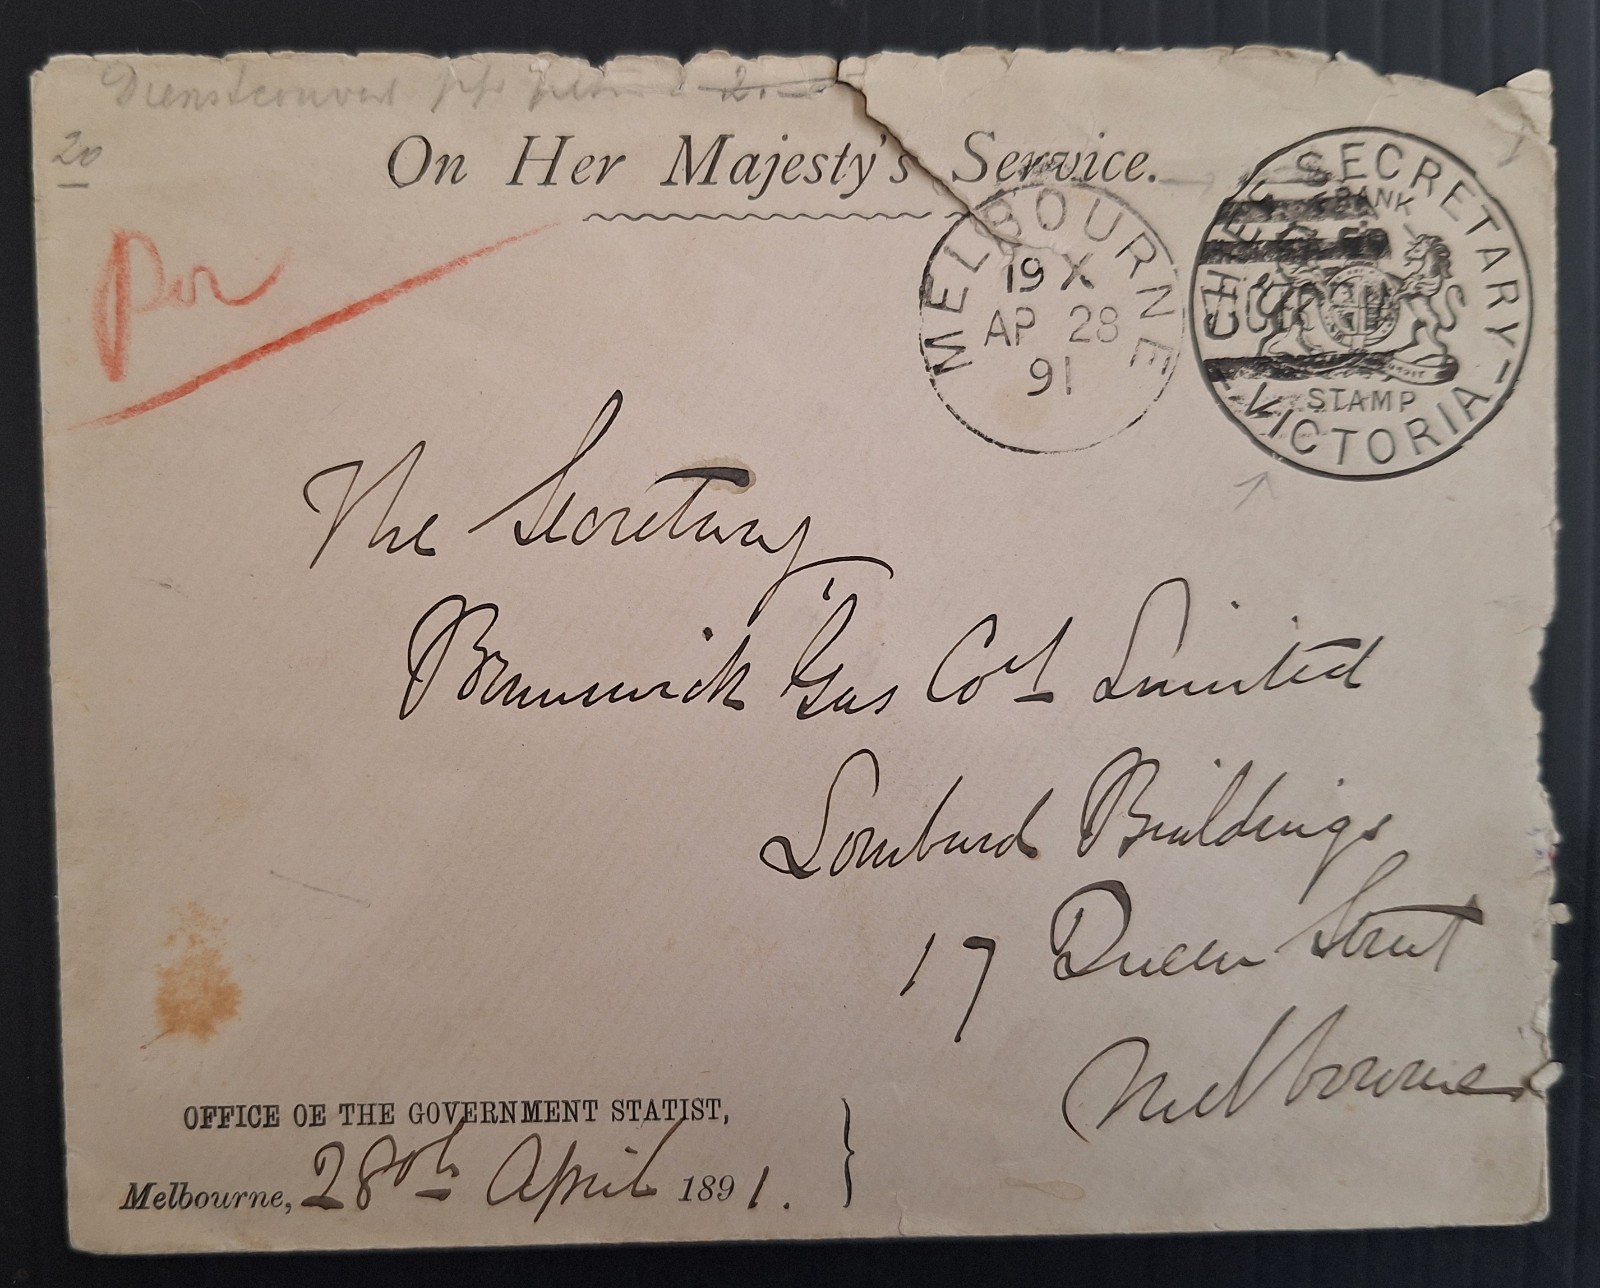 20
On Her Majesty's Service.
MELBOURNE
19 X
AP 28
91
CHIEF SECRETARY
FRANK
STAMP
VICTORIA
The Secretary
Brunswick Gas Coy Limited
Lombard Buildings
17 Queen Street
Melbourne
OFFICE OF THE GOVERNMENT STATIST,
Melbourne, 28th April 1891.